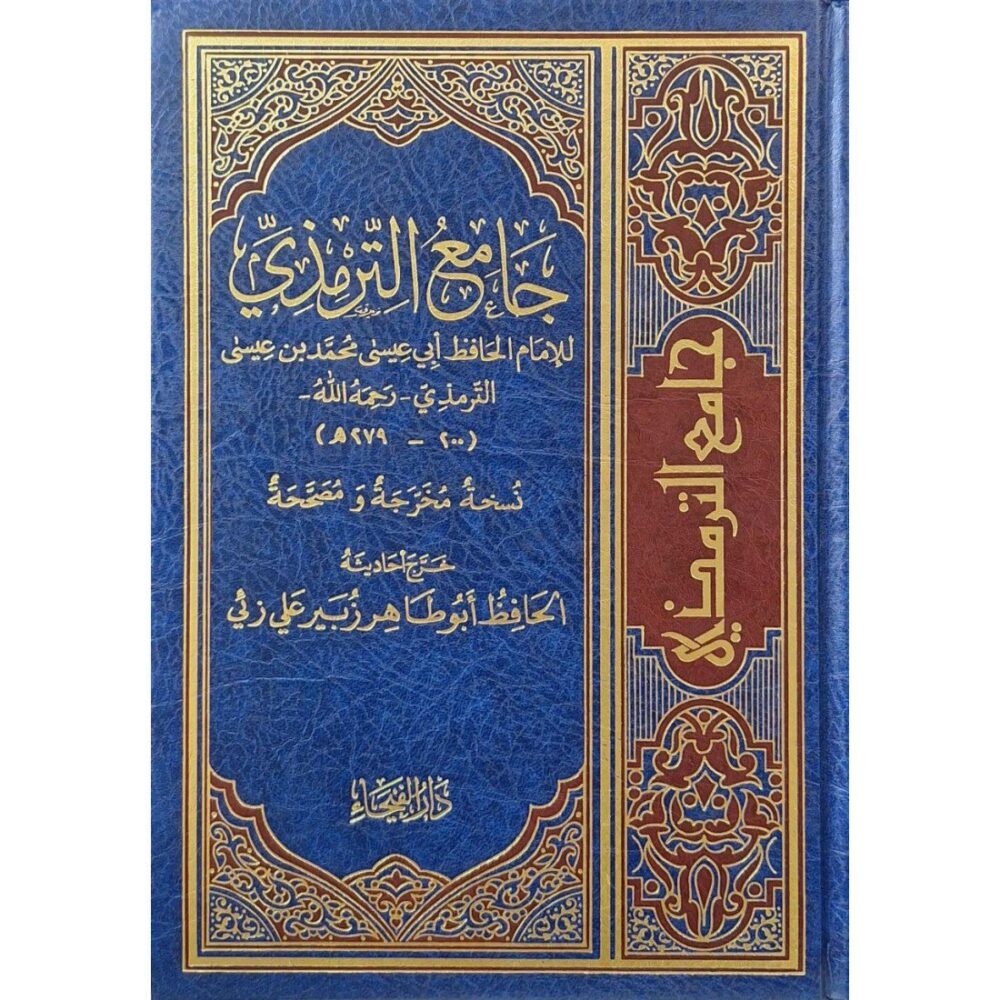 جَامِعُ التِّرْمِذِيِّ
للإِمَام الحَافظ أَبي عِيسَى مُحمَّد بن عِيسَى
التِّرمذِيّ - رَحِمَهُ اللهُ -
(٢٠٠ - ٢٧٩هـ)
نُسخَةٌ مُخَرَّجَةٌ وَ مُصَحَّحَةٌ
خَرَّجَ أَحَاديثَهُ
الحَافِظُ أَبُو طَاهِر زُبَير عَلي زئي
دَارُ الفَيْحَاءِ
جامع الترمذي